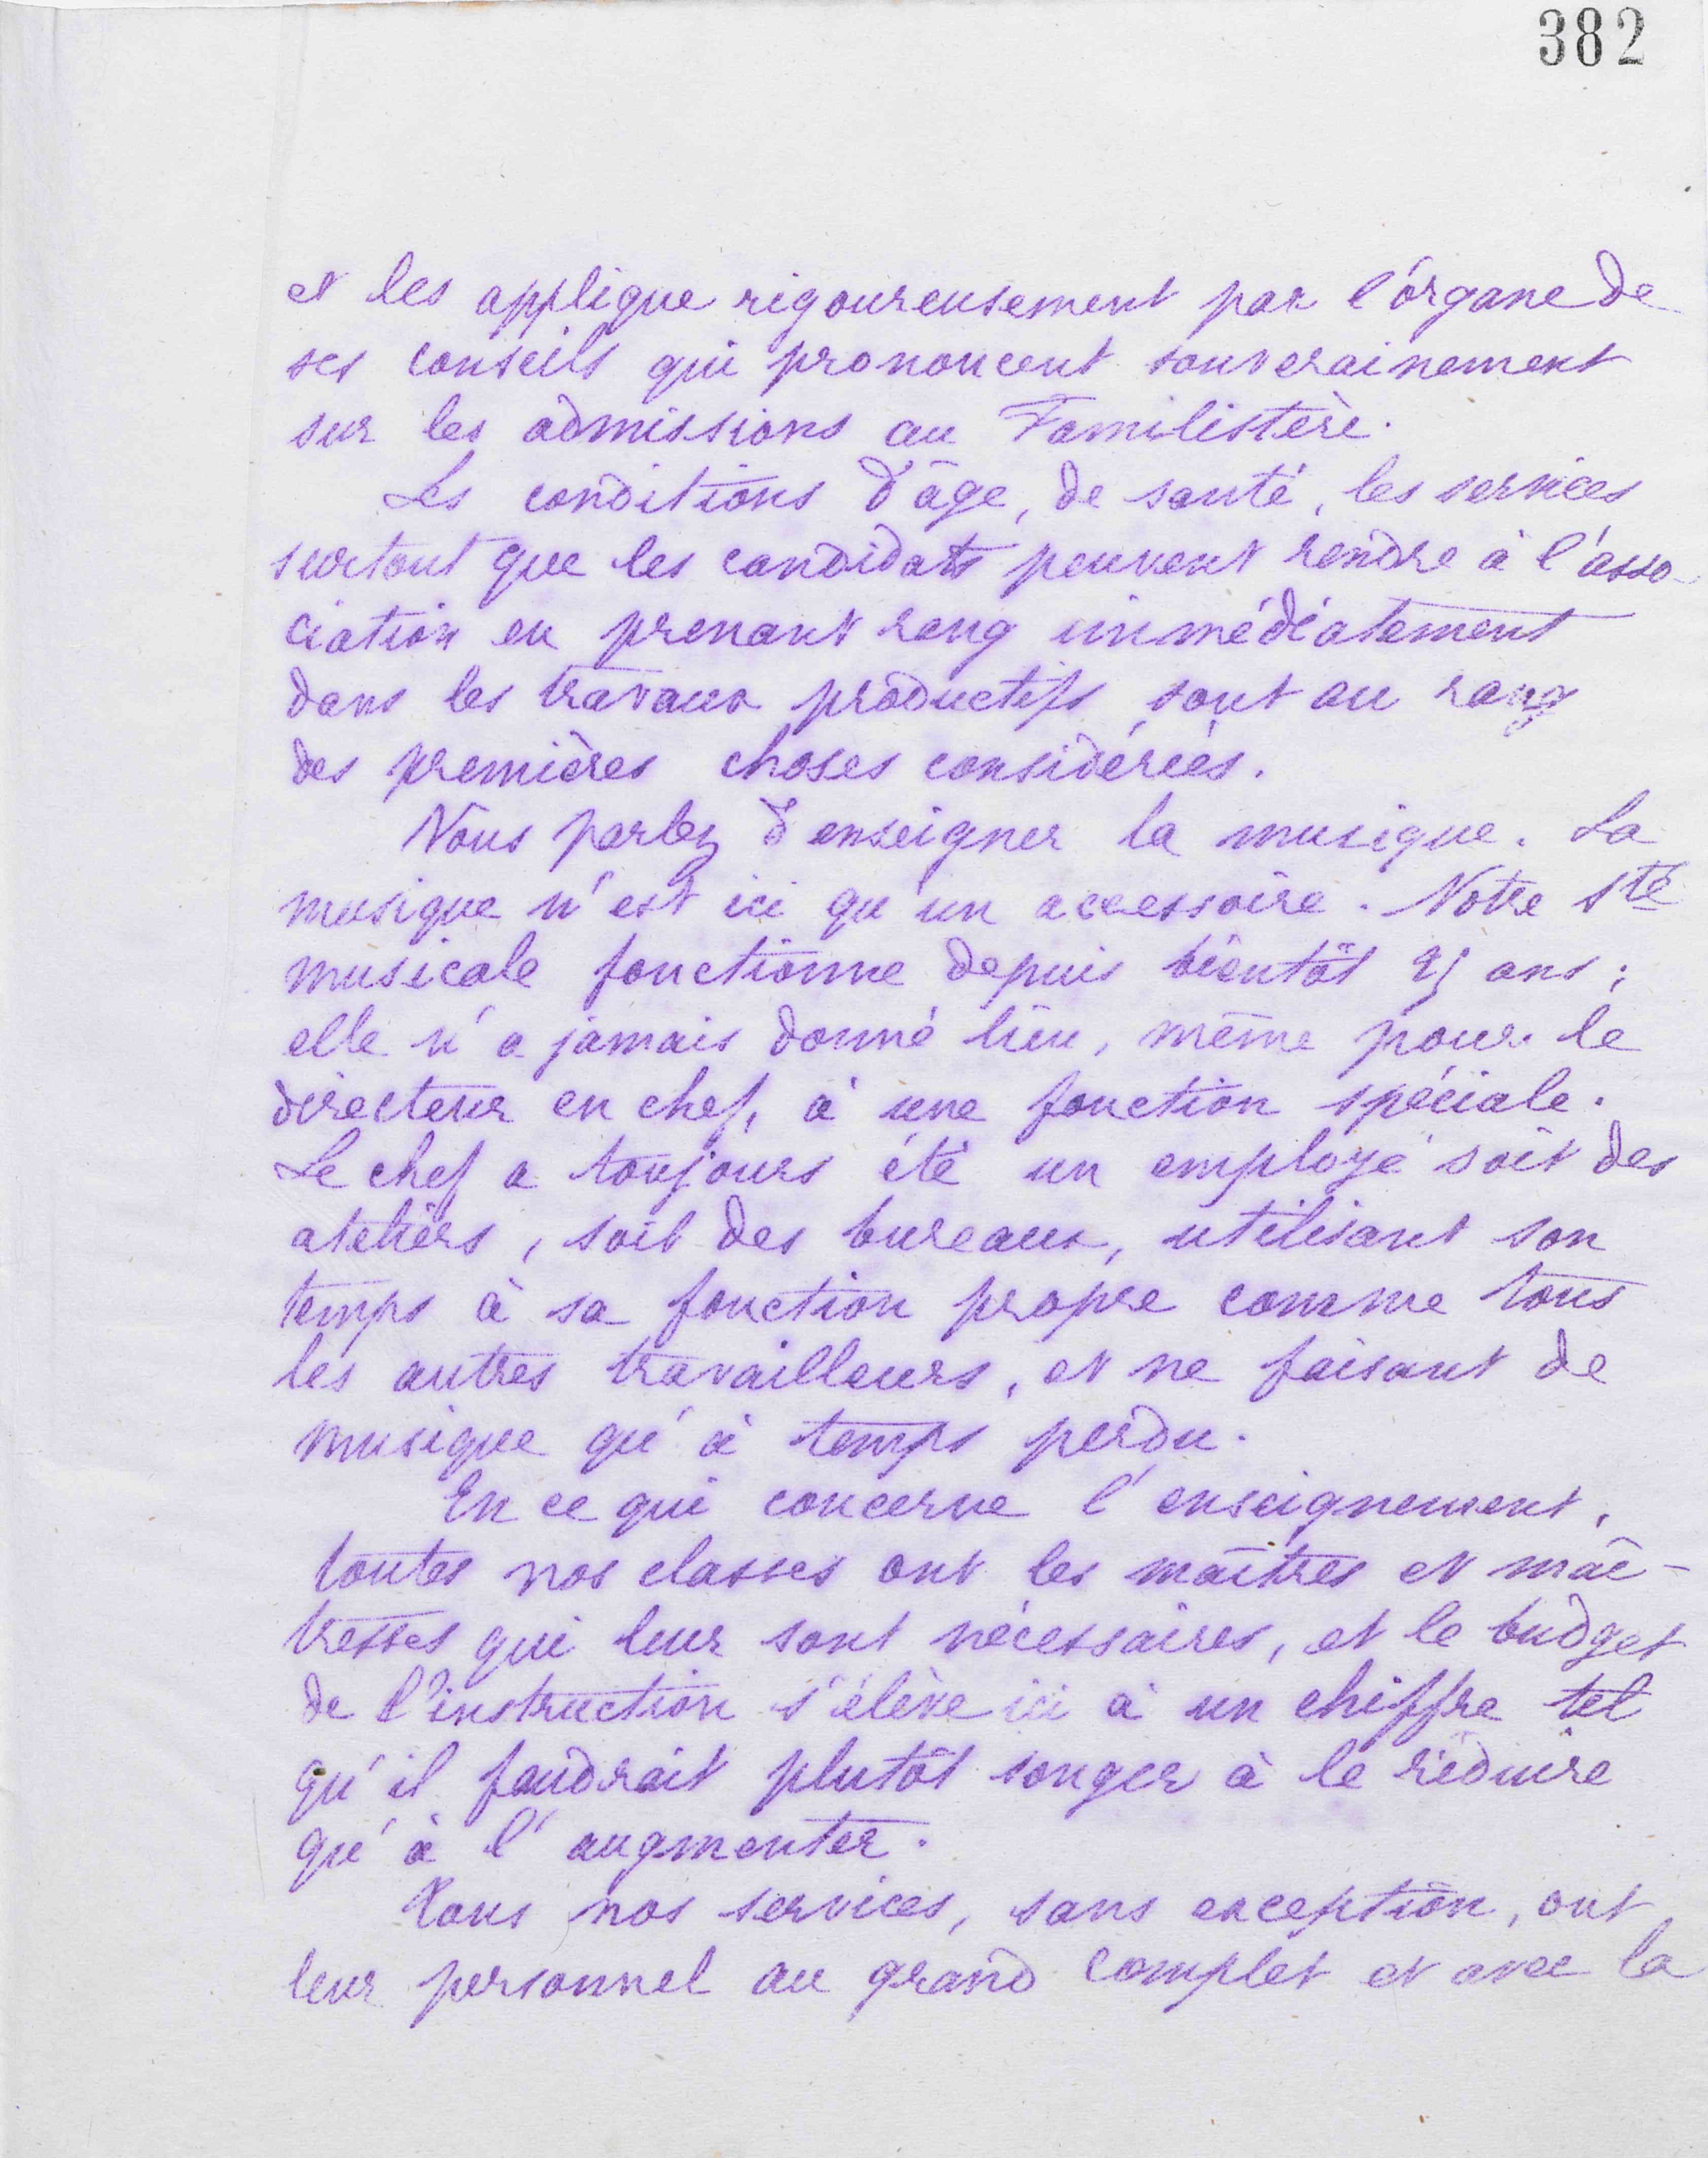 382
et les applique rigoureusement par l'organe de
ses conseils qui prononcent souverainement
sur les admissions au Familistère.
Les conditions d'âge, de santé, les services
surtout que les candidats peuvent rendre à l'asso-
ciation en prenant rang immédiatement
dans les travaux productifs sont au rang
des premières choses considérées.
Vous parlez d'enseigner la musique. La
musique n'est ici qu'un accessoire. Notre Sté
musicale fonctionne depuis bientôt ans ;
elle n'a jamais donné lieu, même pour le
directeur en chef, à une fonction spéciale.
Le chef a toujours été un employé soit des
ateliers, soit des bureaux, utilisant son
temps à sa fonction propre comme tous
les autres travailleurs, et ne faisant de
musique qu'à temps perdu.
En ce qui concerne l'enseignement,
toutes nos classes ont les maîtres et maî-
tresses qui leur sont nécessaires, et le budget
de l'instruction s'élève ici à un chiffre tel
qu'il faudrait plutôt songer à le réduire
qu'à l'augmenter.
Tous nos services, sans exception, ont
leur personnel au grand complet et avec la